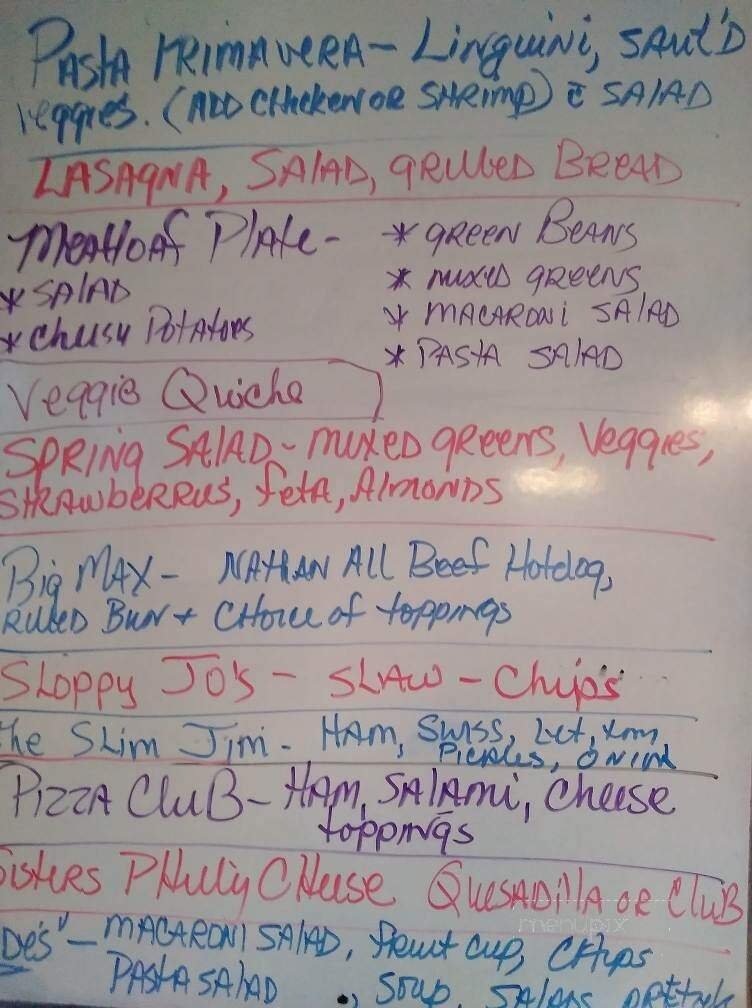 PASTA PRIMAVERA - Linguini, SAUT'D
veggies. (ADD CHICKEN OR SHRIMP) c̄ SALAD
LASAGNA, SALAD, GRILLED BREAD
Meatloaf Plate -
* SALAD
* Cheesy Potatoes
* GREEN BEANS
* MIXED GREENS
* MACARONI SALAD
* PASTA SALAD
Veggie Quiche
SPRING SALAD - MIXED GREENS, Veggies,
STRAWBERRIES, FETA, ALMONDS
Big MAX - NATHAN All Beef Hotdog,
Bun + CHOICE of toppings
Sloppy JO'S - SLAW - Chips
The Slim Jim - HAM, Swiss, Let, tom,
Pickles, Onion
PIZZA CLUB - HAM, SALAMI, Cheese
toppings
Sisters PHILLY CHEESE QUESADILLA OR CLUB
DES" - MACARONI SALAD, fruit cup, CHIPS
PASTA SALAD , SOUP,
menupix